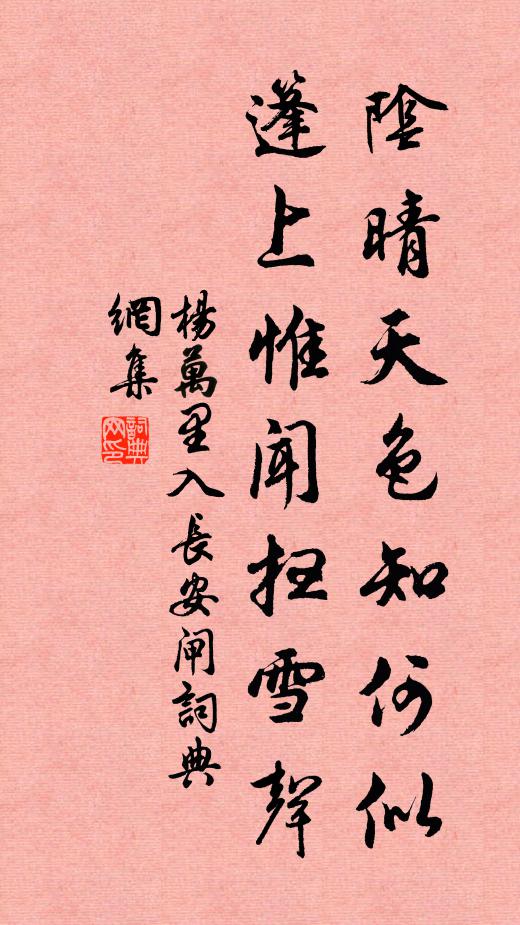 陰晴天色知何似
蓬上惟聞掃雪聲
楊萬里入長安閘詞典
網集
詞典網印